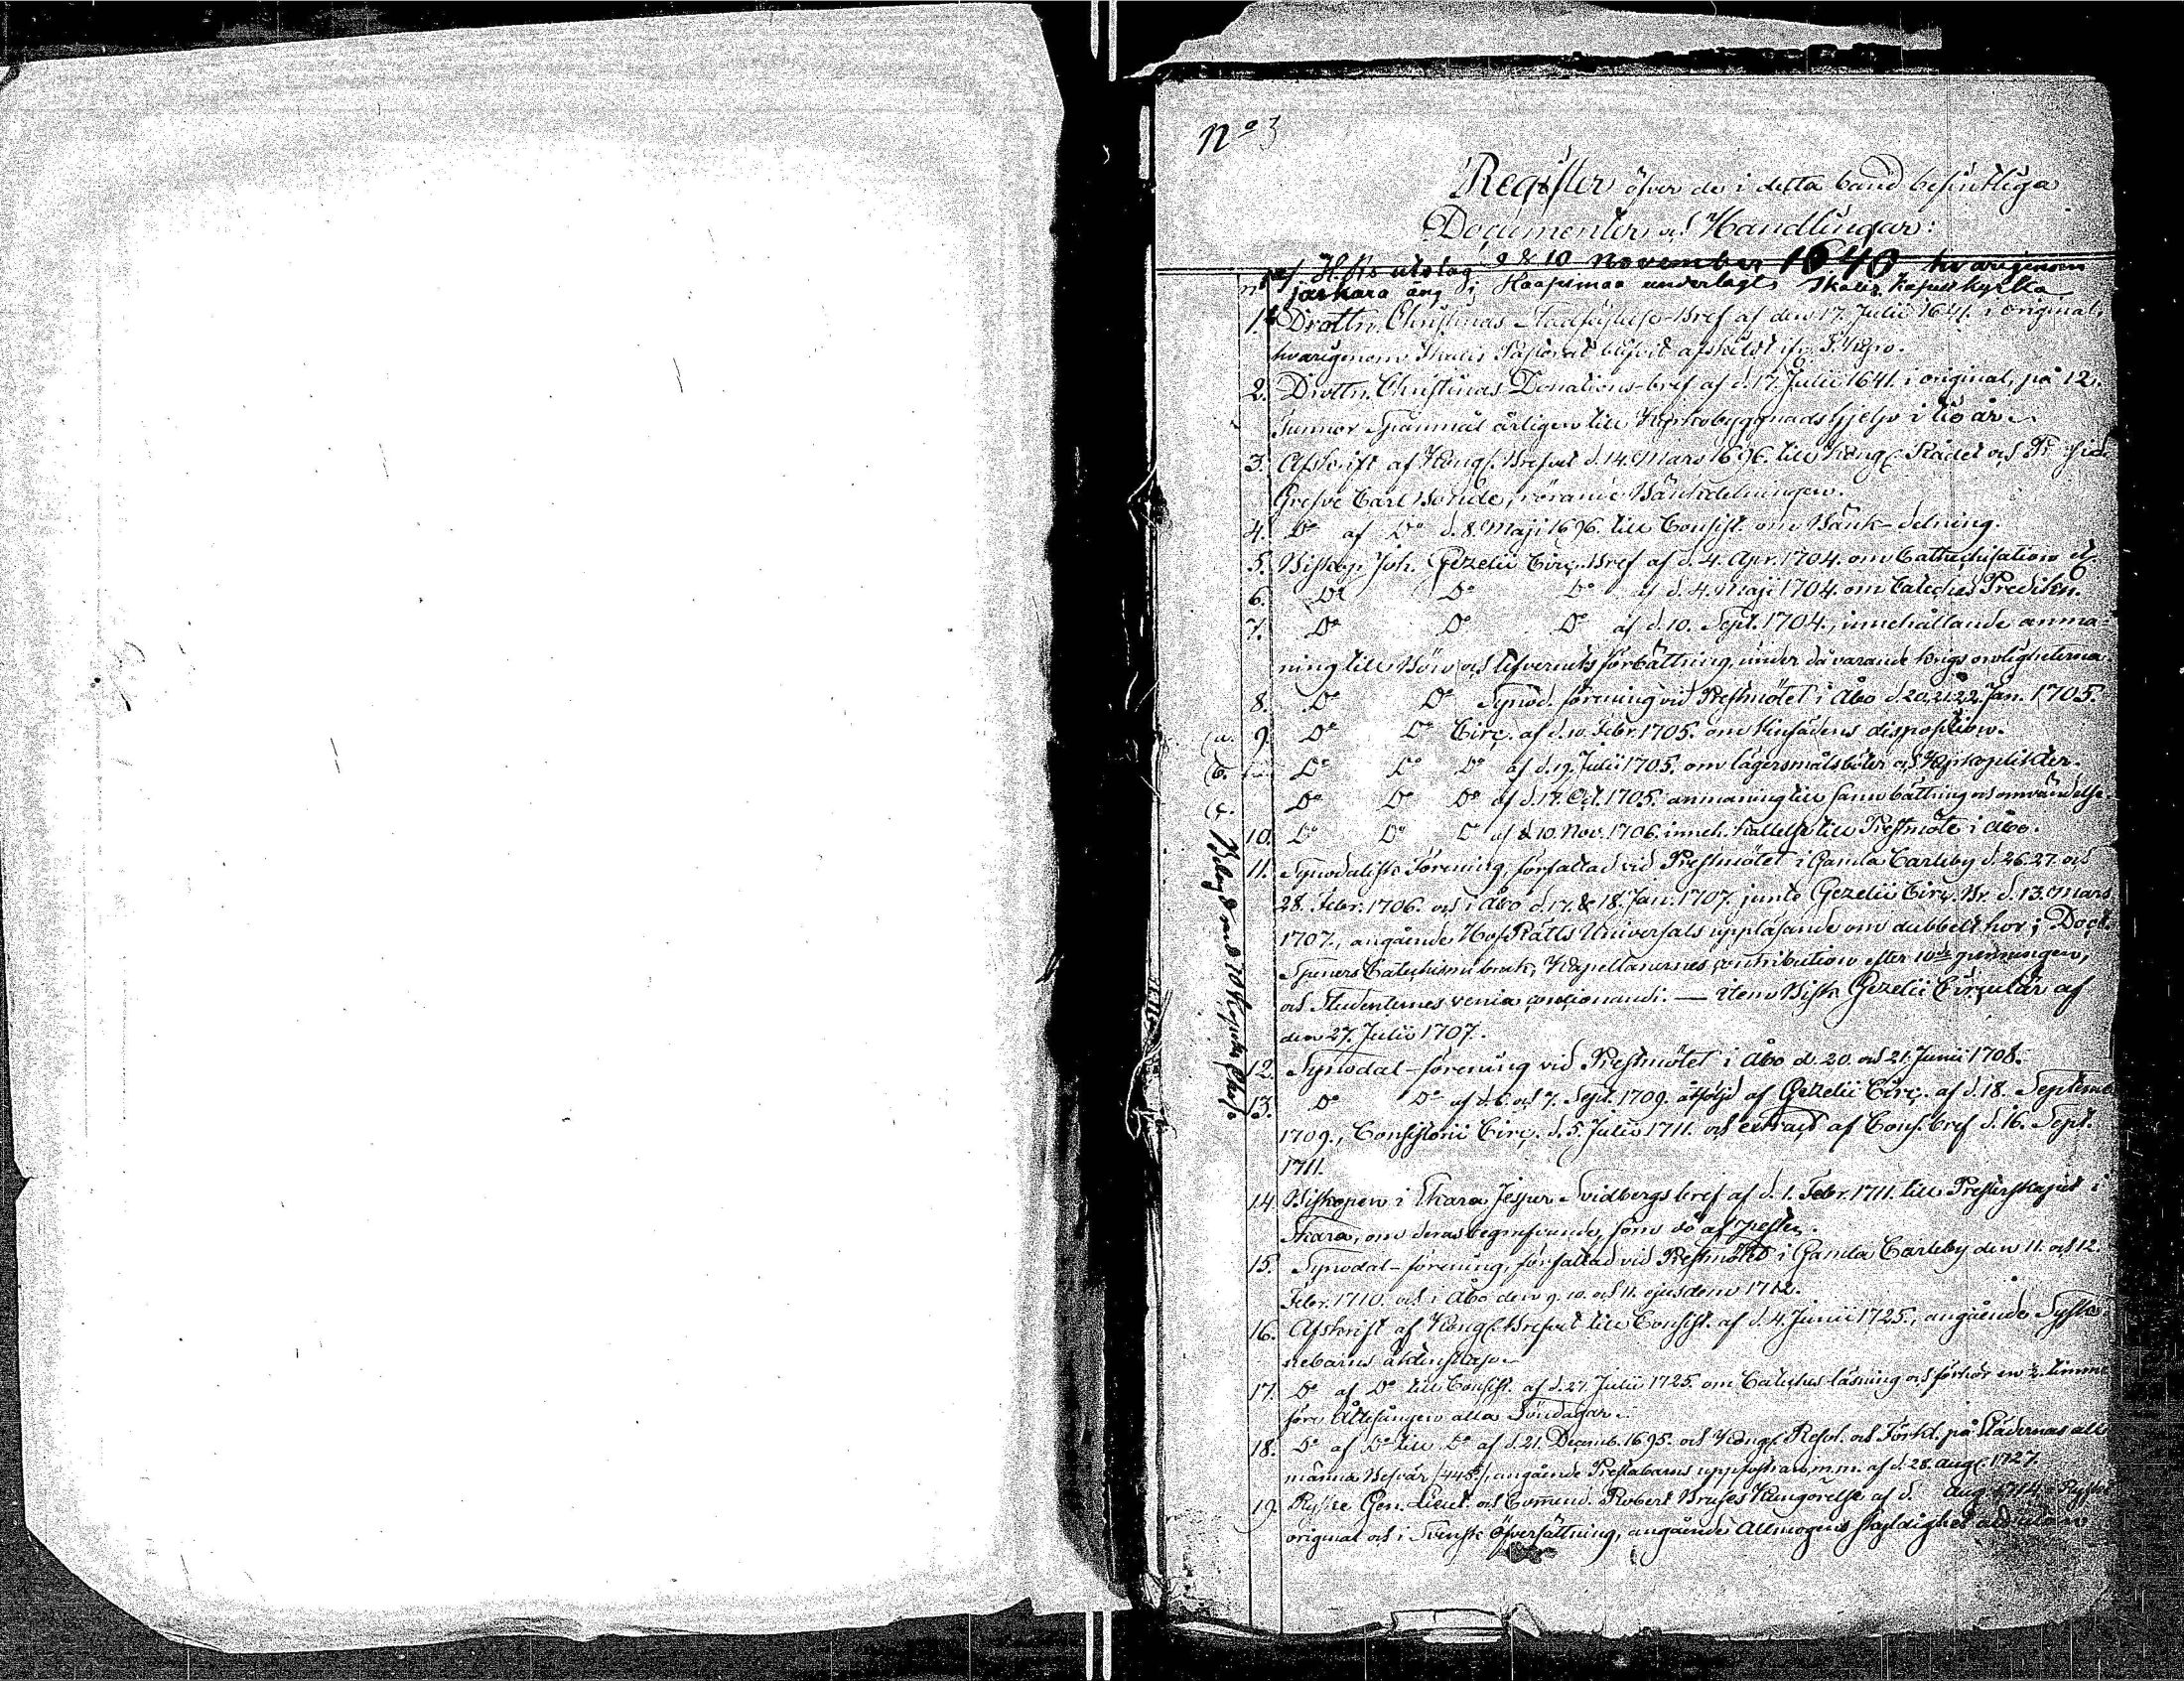 No 3
Register öfver de i detta band befintliga
Documenter och Handlingar:
af H. Rs utslag d 8 10 november 1640 hvarigenom
jaskara äng i Haapimaa underlagts Kapell kyrka
1. Drottn. Christinas Stadfästelse-Bref af den 17. Julii 1641. i original,
hvarigenom Pastorat blifvit afskildt ifr.
2. Drottn. Christinas Donations-bref af d. 17. Julii 1641. i original, på 12.
Tunnor Spannmål årligen till Kyrkobyggnads hjelp i tio år.
3. Afskrift af Kongl. Brefvet d. 14. Mars 1696. till Kongl. Rådet och Presid.
Grefve Carl Bonde, rörande Bänkdelningen.
4. Do af Do d. 8. Maji 1696. till Consist. om Bänk-delning.
5. Biskop Joh. Gezelii Circ. Bref af d. 4. Apr. 1704. om Cathechisation &c.
6. Do Do Do af d. 4. Maji 1704. om Cateches Predikn.
7. Do Do Do af d. 10. Sept. 1704., innehållande anma-
ning till Bön och lefvernets förbättring, under då varande krigs oroligheterna
8. Do Do Synod. förening vid Prestmötet i Åbo d. 20. 21. 22. Jan. 1705.
(a. 9. Do Do Circ. af d. 10. Febr. 1705. om disposition.
(b. Do Do Do af d. 19. Julii 1705. om lägersmålsböter och Kyrkoplikter.
(c. Do Do Do af d. 17. Oct. 1705. anmaning till sann bättring och omvändelse
10. Do Do Do af d. 10. Nov. 1706. inneh. kallelse till Prestmöte i Åbo.
11. Synodalisk Förening, författad vid Prestmötet i Gamla Carleby d. 26. 27. och
28. Febr. 1706. och i Åbo d. 17. & 18. Jan. 1707. jemte Gezelii Circ. Br. d. 13. Mars
1707., angående HofRätts Universals uppläsande om dubbelt hor; Doct.
Speners Catechismi bruk, Kapellanernes contribution efter 10de penningen,
och Studenternes venia concionandi. — item Bisk. Gezelii Circulär af
den 27. Julii 1707.
12. Synodal-förening vid Prestmötet i Åbo d. 20. och 21. Junii 1708.
13. Do Do af d. 6. och 7. Sept. 1709. åtföljd af Gezelii Circ. af d. 18. Septemb.
1709., Consistorii Circ. d. 5. Julii 1711. och extract af Cons. bref d. 16. Sept.
1711.
14. Biskopen i Skara Jesper Svedbergs bref af d. 1. Febr. 1711. till Presterskapet i
Skara, om deras begrafvande, som dö af pesten.
15. Synodal-förening, författad vid Prestmötet i Gamla Carleby den 11. och 12.
Febr. 1710. och i Åbo den 9. 10. och 11. ejusdem 1712.
16. Afskrift af Kongl. Brefvet till Consist. af d. 4. Junii 1725., angående Sysko-
nebarns äktenskap.
17. Do af Do till Consist. af d. 27. Julii 1725. om Cateches läsning och förhör en ½ timme
före Ottesången alla Söndagar.
18. Do af Do till Do af d. 21. Decemb. 1695. och Kongl. Resol. och Förkl. på Städernas all-
männa Besvär /44 §/, angående Prestabarns uppfostran, m.m. af d. 28. Aug. 1727.
19. Ryske Gen. Lieut. och Commend. Robert Bruses Kungörelse af d. Aug. 1714. i Ryskt
original och i Svensk öfversättning, angående Allmogens skyldighet